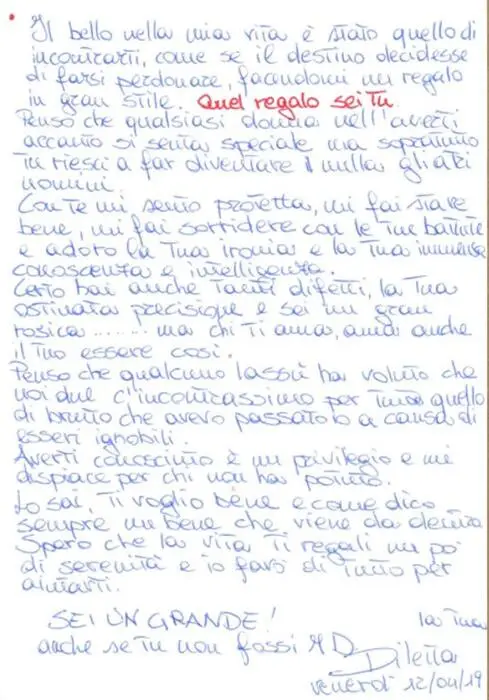 Il bello nella mia vita è stato quello di
incontrarti, come se il destino decidesse
di farsi perdonare, facendomi un regalo
in gran stile. Quel regalo sei Tu
Penso che qualsiasi donna nell'averti
accanto si senta speciale ma soprattutto
tu riesci a far diventare il nulla gli altri
uomini.
Con Te mi sento protetta, mi fai stare
bene, mi fai sorridere con le tue battute
e adoro la Tua ironia e la Tua immensa
conoscenza e intelligenza.
Certo hai anche Tanti difetti, la Tua
ostinata precisione e sei un gran
rosica........ ma chi Ti ama, ama anche
il Tuo essere così.
Penso che qualcuno lassù ha voluto che
noi due c'incontrassimo per tutto quello
di brutto che avevo passato a causa di
esseri ignobili.
Averti conosciuto è un privilegio e mi
dispiace per chi non ha potuto.
Lo sai, Ti voglio bene e come dico
sempre un bene che viene da dentro
Spero che la vita Ti regali un po'
di serenità e io farò di Tutto per
aiutarti.
SEI UN GRANDE! la Tua
anche se Tu non fossi MD Diletta
venerdì 12/04/19